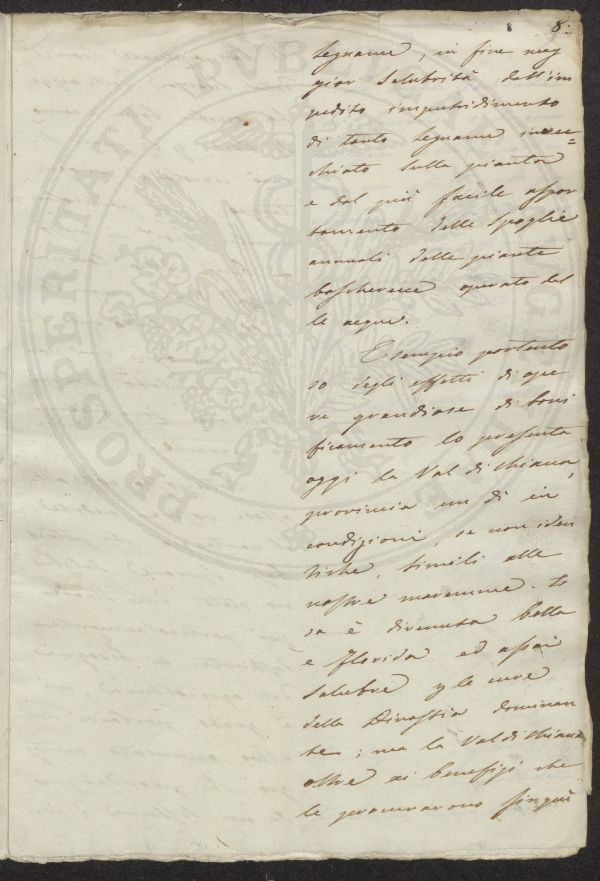 8.
legname, in fine mag
gior salubrità dall'im
pedito imputridimento
di tanto legname invec=
chiato sulla pianta
e dal più facile aspor
tamento delle spoglie
annuali delle piante
boschereccie operato dal
le acque.
Esempio portento
so degli effetti di ope
re grandiose di boni
ficamento lo presenta
oggi la Val di Chiana,
provincia un dì in
condizioni, se non iden
tiche, simili alle
nostre maremme. Es
sa è divenuta bella
e florida ed assai
salubre p le cure
della Dinastia dominan
te; ma la Val di Chiana
oltre ai benefizi che
le procurarono
PROSPERITATI PUBLICAE